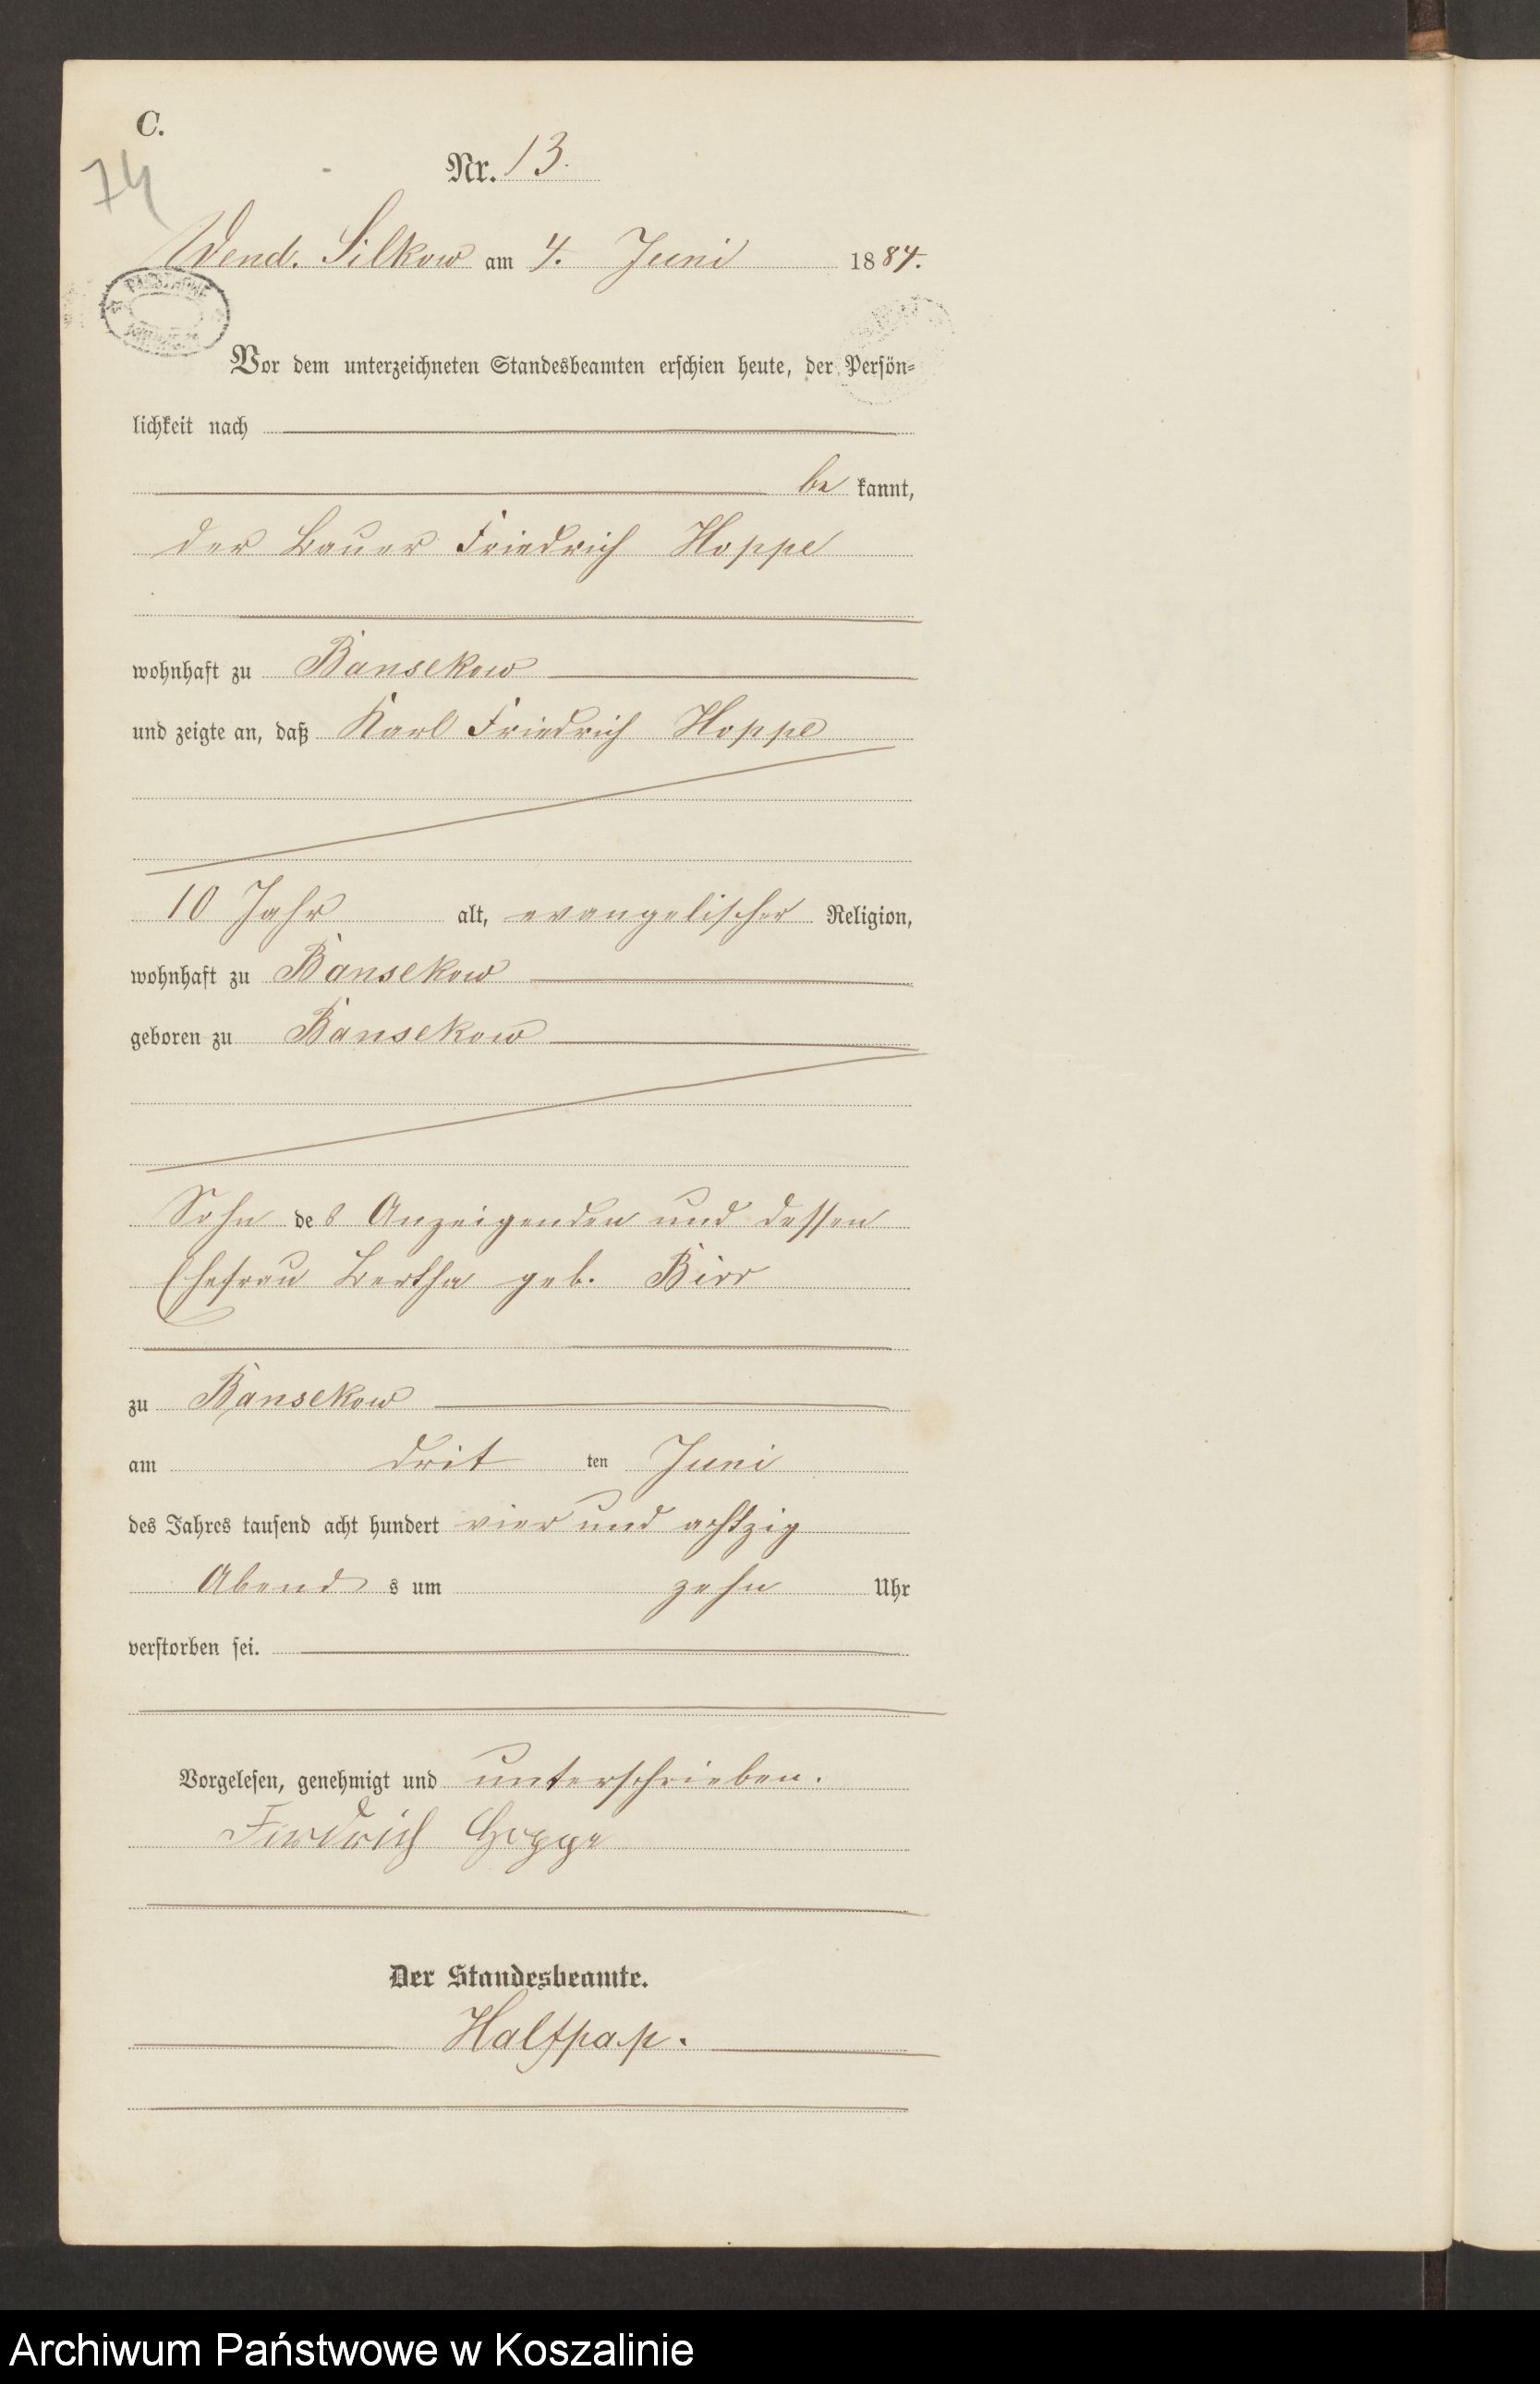 C.
74
Nr. 13.
Wend. Silkow am 4. Juni 1884.
Vor dem unterzeichneten Standesbeamten erschien heute, der Persön=
lichkeit nach
be kannt,
der Bauer Friedrich Hoppe
wohnhaft zu Bansekow
und zeigte an, daß Karl Friedrich Hoppe
10 Jahr alt, evangelischer Religion,
wohnhaft zu Bansekow
geboren zu Bansekow
Sohn des Anzeigenden und dessen
Ehefrau Bertha geb. Birr
zu Bansekow
am drit ten Juni
des Jahres tausend acht hundert vier und achtzig
Abend s um zehn Uhr
verstorben sei.
Vorgelesen, genehmigt und unterschrieben.
Friedrich Hoppe
Der Standesbeamte.
Halfpap.
Archiwum Państwowe w Koszalinie